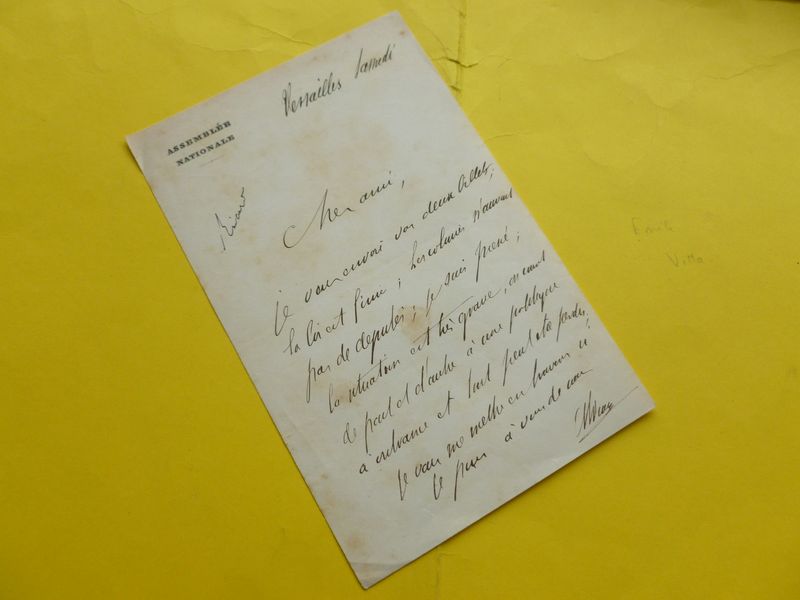 Versailles Samedi
ASSEMBLÉE
NATIONALE
Cher ami,
Je vous envoie vos deux billets;
la loi est finie; les colonies n'auront
pas de députés; je suis pressé;
la situation est très grave, on court
de part et d'autre à une politique
à outrance et tout peut être perdu!
Je vais me mettre en travers si
je puis à vous de
Emile
Villa